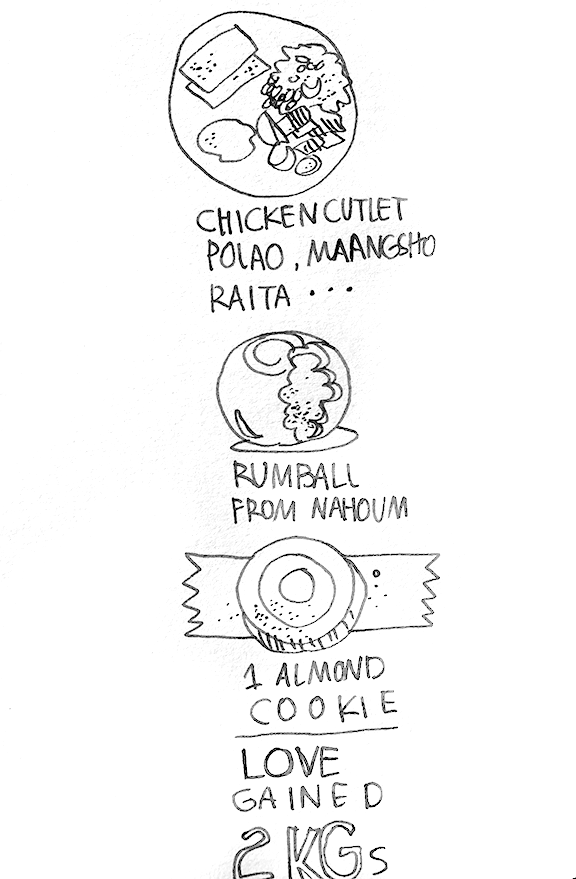 CHICKEN CUTLET
POLAO, MAANGSHO
RAITA ...
RUMBALL
FROM NAHOUM
1 ALMOND
COOKIE
LOVE
GAINED
2 KGs